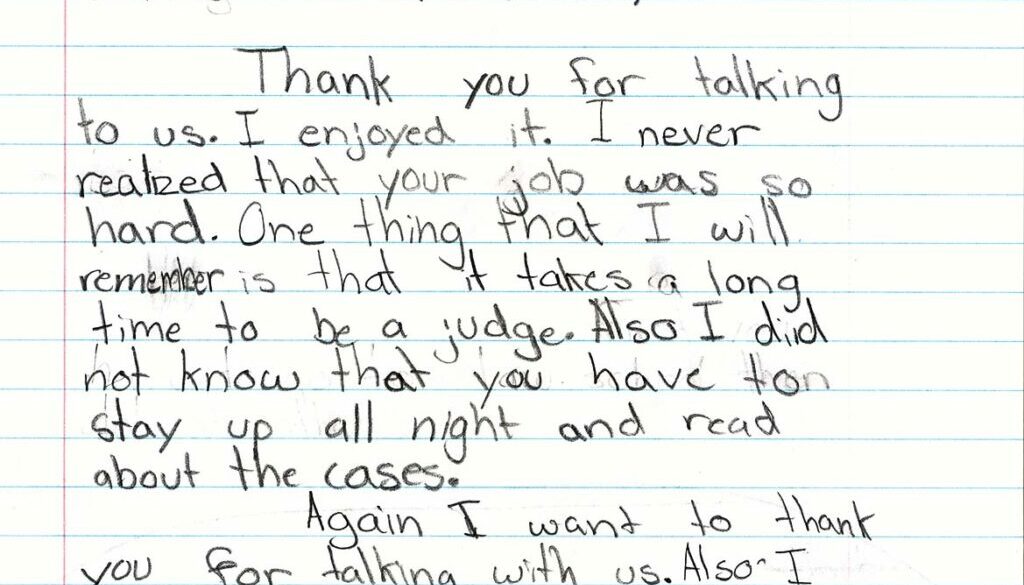 Thank you for talking
to us. I enjoyed it. I never
realized that your job was so
hard. One thing that I will
remember is that it takes a long
time to be a judge. Also I did
not know that you have ton
stay up all night and read
about the cases.
Again I want to thank
you for talking with us. Also I